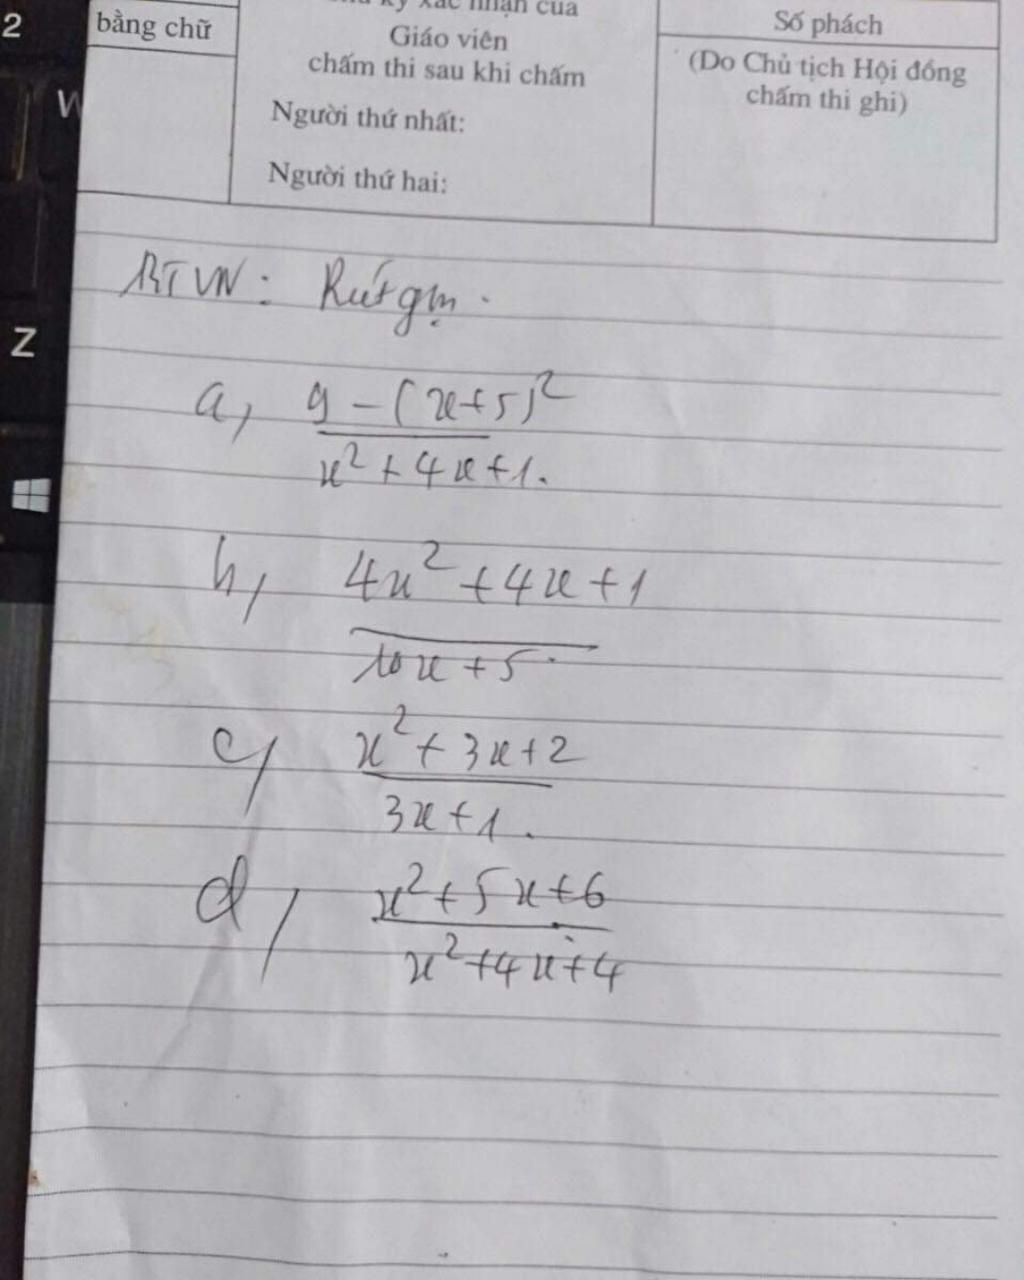 2
W
Z
bằng chữ
ký xác nhận của
Giáo viên
chấm thi sau khi chấm
Người thứ nhất:
Người thứ hai:
Số phách
(Do Chủ tịch Hội đồng
chấm thi ghi)
BTVN: Rút gọn.
a, 9-(x+5)²
x²+4x+1.
b, 4x²+4x+1
10x+5.
c, x²+3x+2
3x+1.
d, x²+5x+6
x²+4x+4